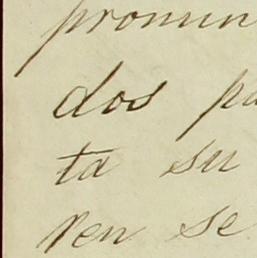 pronun
dos pa
ta su
ren se